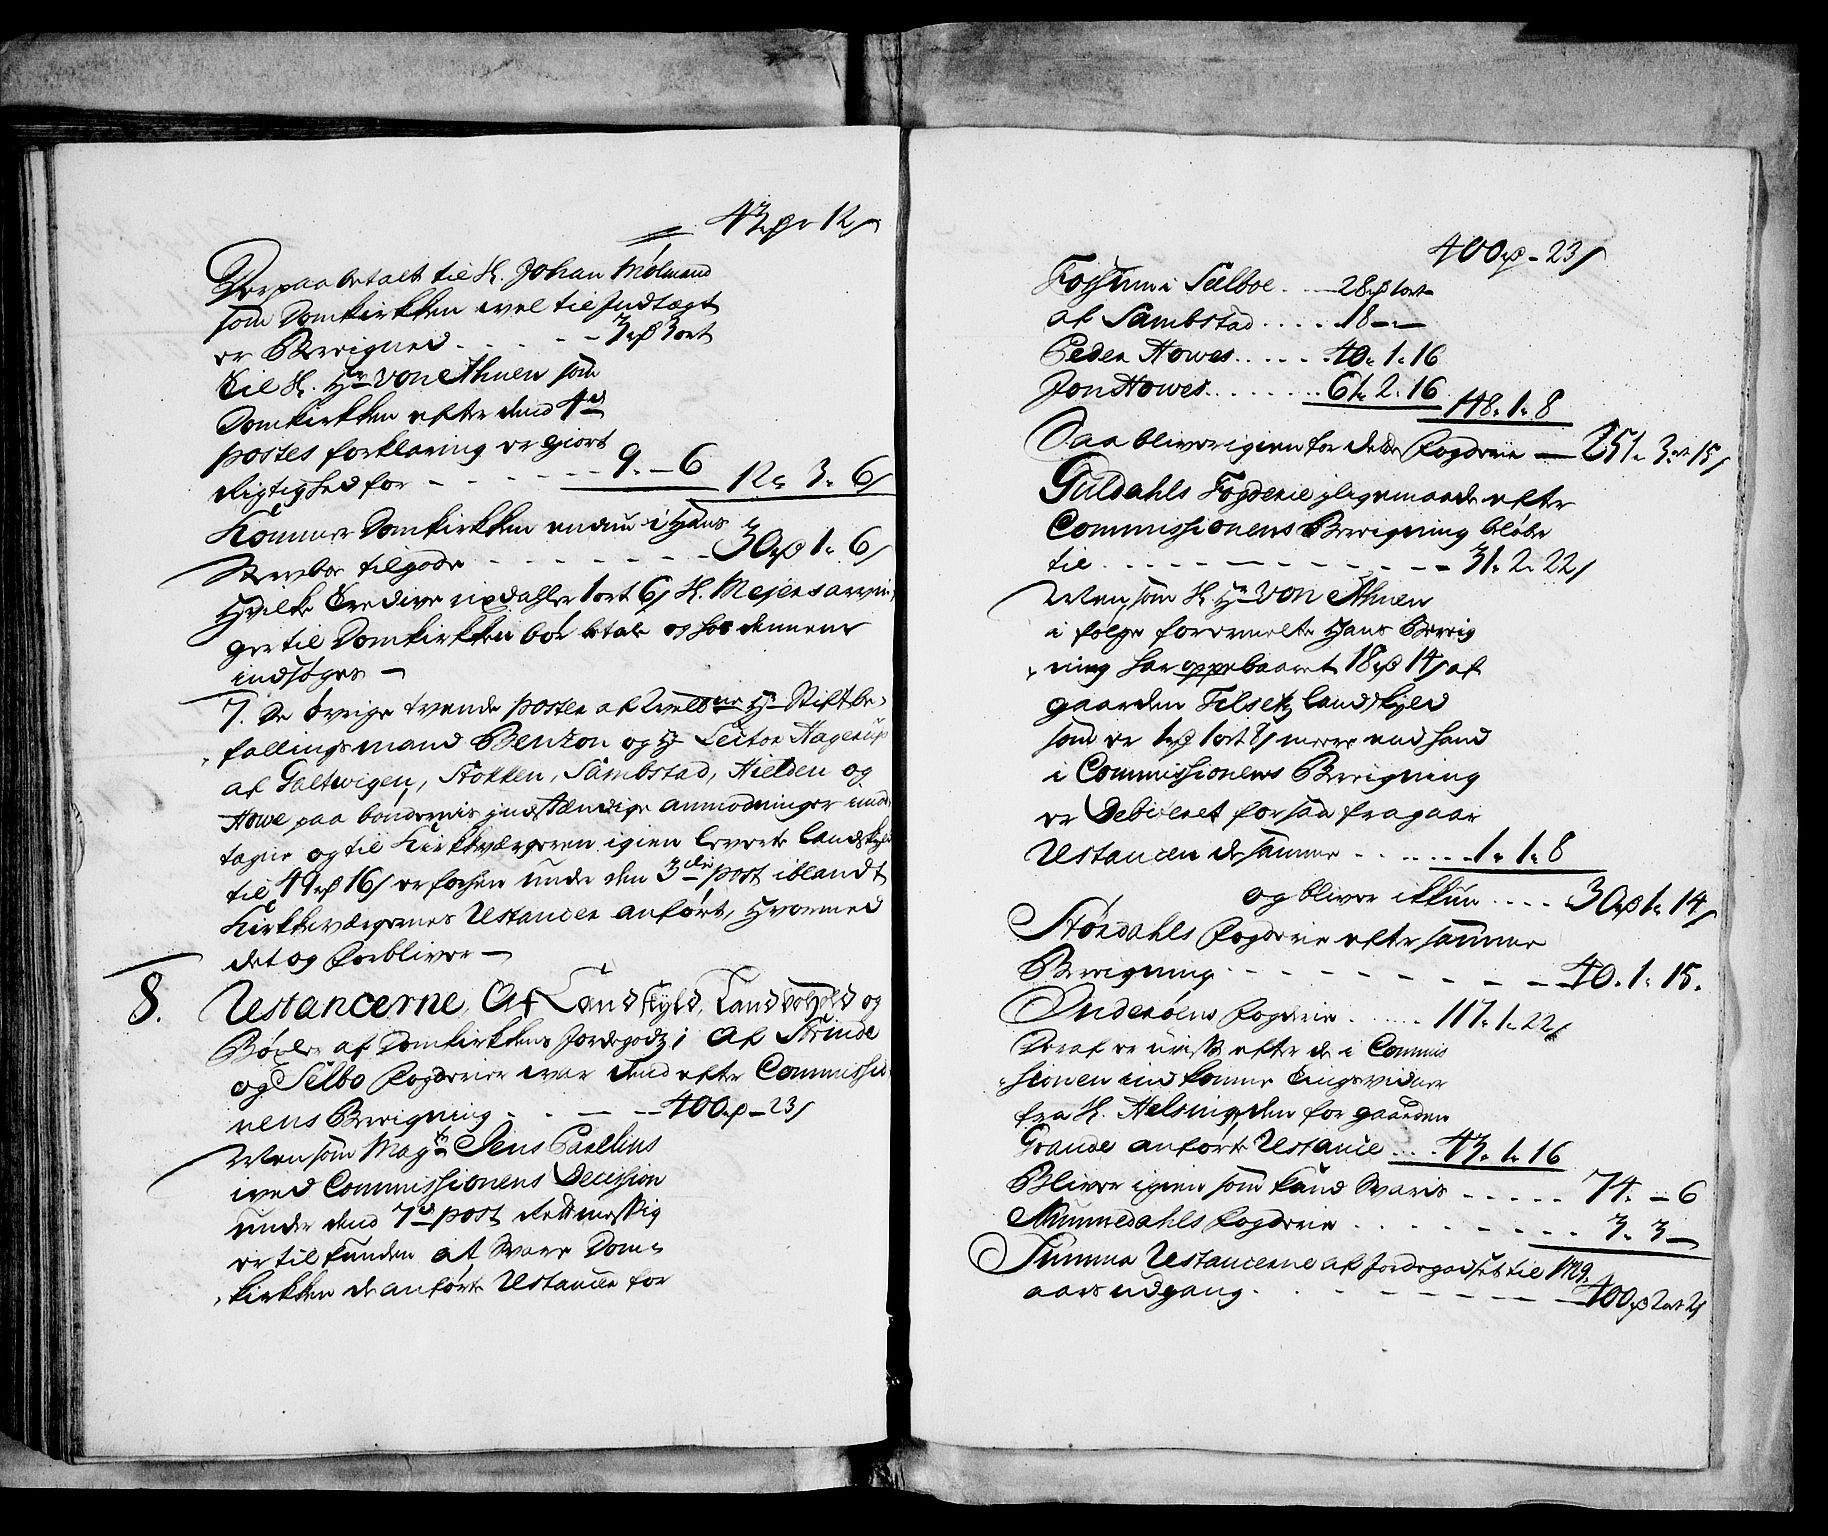 42 rd - 12 s
Derpaa betalt til H. Johan Mølmand
som Domkirken vel til Indtægt
er Beregned - - - - 3 rd 3 ort
Til H. Hr von Ahnen som
Domkirken efter dend 4de
postes forklaring er giort
Rigtighed for - - - - 9. - 6   12. 3. 6 s
Kommer Domkirken endnu i Hans
Sterboe tilgode - - - - - - 30 rd 1. 6 s
Hvilke Tredive rixdahler 1 ort 6 s H. Mejers arvin
ger til Domkirken bør betale og hos dennem
indsøges -
7. De øvrige tvende poster af Hr Stiftbe-
fallingsmand Benzon og Hr Lector Hagerup
af Galtwigen, Stokken, Sambstad, Hielden og
Howe paa bøndernis indstændige anmodninger mod
tagne og til Kirkeværgeren igien leverte landskyld
til 49 rd 16 s er forhen under den 3die post iblandt
Kirkeværgernes Restancer anført, Hvormed
det og forbliver -
8. Restancerne, Af Landskyld, Landbohold og
Bøxler af Domkirkens Jordegodz i Af Strinde
og Selbo fogderier var dend efter Commissio
nens Beregning - - - - 400 rd - 23 s
Men som Magr Jens Parelius
ved Commissionens Decission
under dend 7de post Rettmessig
er tilfunden at svare Dom-
kirken de anførte Restancer for
400 rd - 23 s
Fossum i Selboe - - 28 rd 1 ort -
af Sambstad . . . . . 18 - -
Peder Howes . . . . . 40. 1. 16
Jon Howes . . . . . . . 61. 2. 16   148. 1. 8
Saa bliver igien for dette fogderie - 251. 3 ort 15 s
Guldahls Fogderie i ligemaade efter
Commissionens Beregning beløber
til . . . - - - - - - - - - 31. 2. 22 s
Men som H. Hr von Ahnen
i følge formelte Hans Bereg
ning har oppebaaret 18 rd 14 s af
gaarden Filsetz landskyld
som er 1 rd 1 ort 8 s mere end hand
i Commissionens Beregning
er Debiteret for saa fragaar
Restancen de samme - . . . . . 1. 1. 8
og bliver ikkun . . . . 30 rd 1. 14 s
Størdahls fogderie efter samme
Beregning - - - - - - - - 40. 1. 15.
Inderøens fogderie . . . . . 117. 1. 22 s
Deraf er urigtig efter de i Commis
sionen indkomne Tingsvidner
fra H. Helsing, den for gaarden
Grande anførte Restance . . . 43. 1. 16
Bliver igien som kand Svaris - - - - - 74. - 6
Nummedahls fogderie - - - - - - - 3. 3 -
Summa Restancerne af Jordegodset til 1729.
aars udgang - - - - - - - - 400 rd 2 ort 2 s